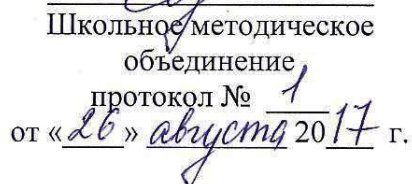 Школьное методическое
объединение
протокол № 1
от «26» августа 2017 г.